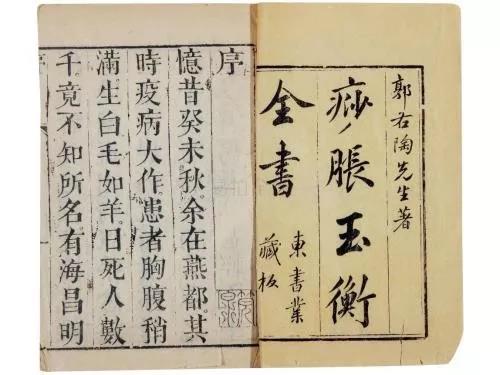 郭右陶先生著
痧脹玉衡
全書
東書業
藏板
序
憶昔癸未秋余在燕都其
時疫病大作患者胸腹稍
滿生白毛如羊日死人數
千竟不知所名有海昌明